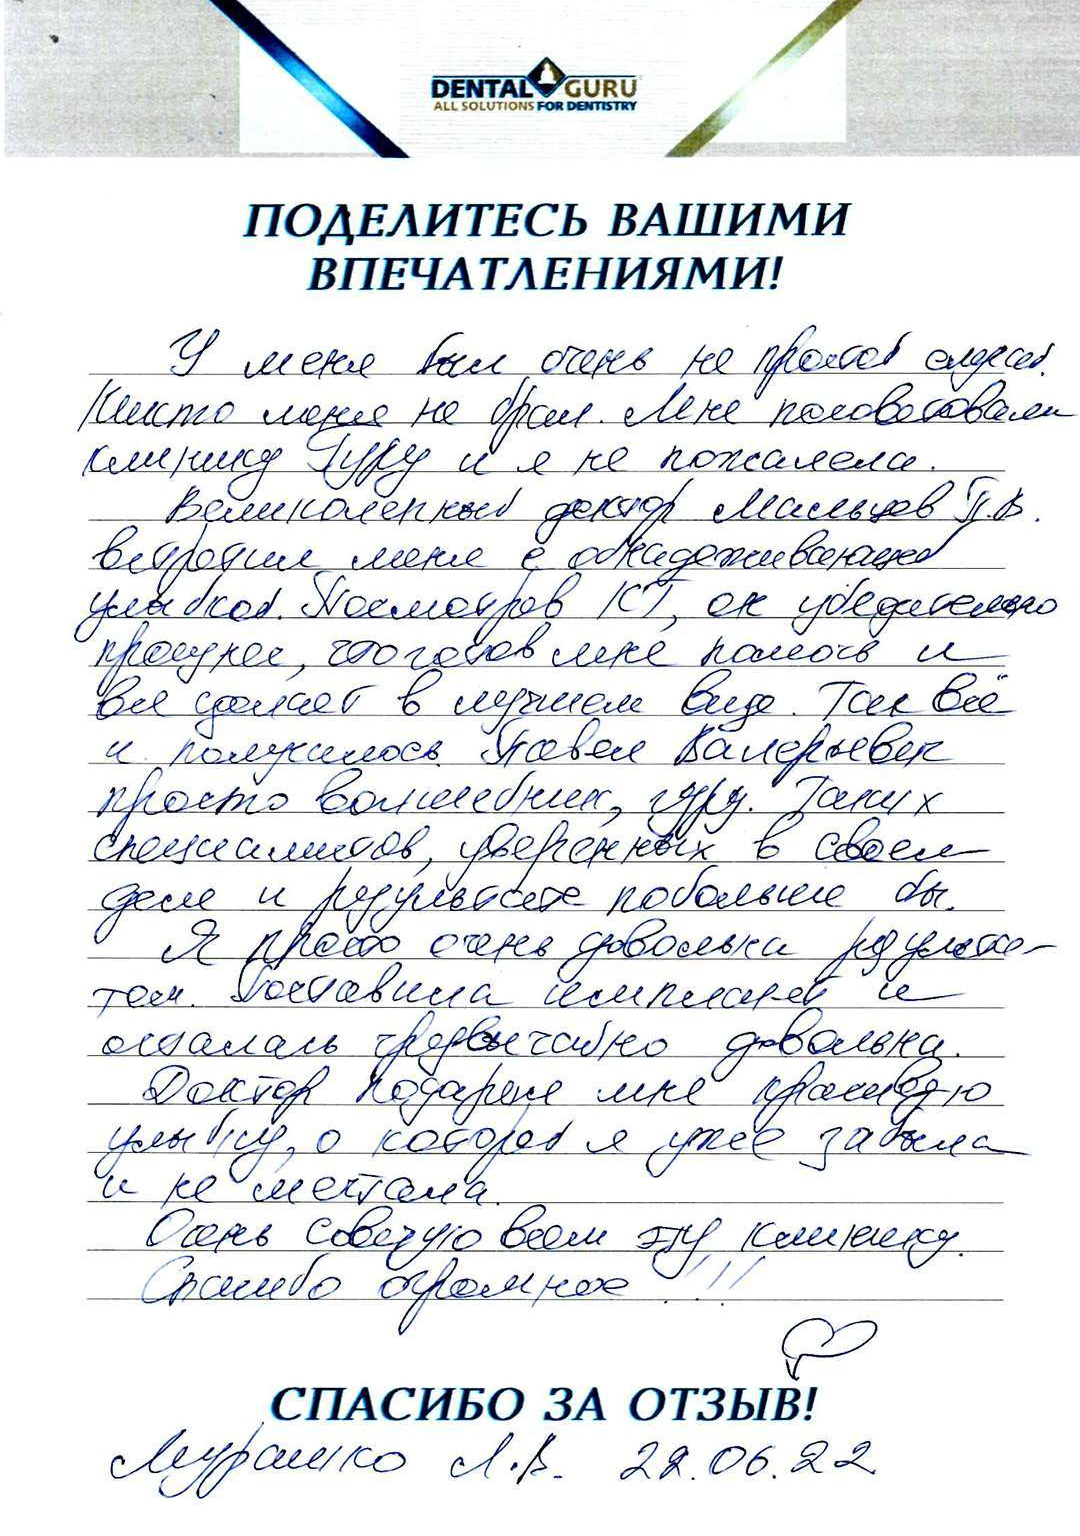 DENTAL GURU
ALL SOLUTIONS FOR DENTISTRY
ПОДЕЛИТЕСЬ ВАШИМИ
ВПЕЧАТЛЕНИЯМИ!
У меня был очень не простой случай.
Никто меня не брал. Мне посоветовали
клинику Гуру и я не пожалела.
Великолепный доктор Мальцев П.В.
встретил меня с обнадёживающей
улыбкой. Посмотрев КТ, он убедительно
что готов мне помочь и
всё сделает в лучшем виде. Так всё
и получилось. Павел Валерьевич
просто волшебник, гуру. Таких
специалистов, уверенных в своем
деле и результате побольше бы.
Я просто очень довольна результа-
том. Поставила имплант и
осталась чрезвычайно довольна.
Доктор подарил мне красивую
улыбку, о которой я уже забыла
и не мечтала.
Очень советую всем эту клинику.
Спасибо огромное !!!
СПАСИБО ЗА ОТЗЫВ!
Мурашко Л.В. 22.06.22